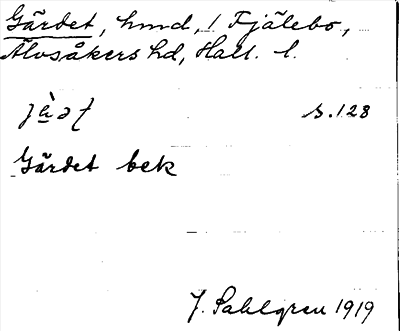 Gärdet, hmd, 1 Fjälebo,
Älvsåkers hd, Hall. l.
s. 128
Gärdet bek
J. Sahlgren 1919